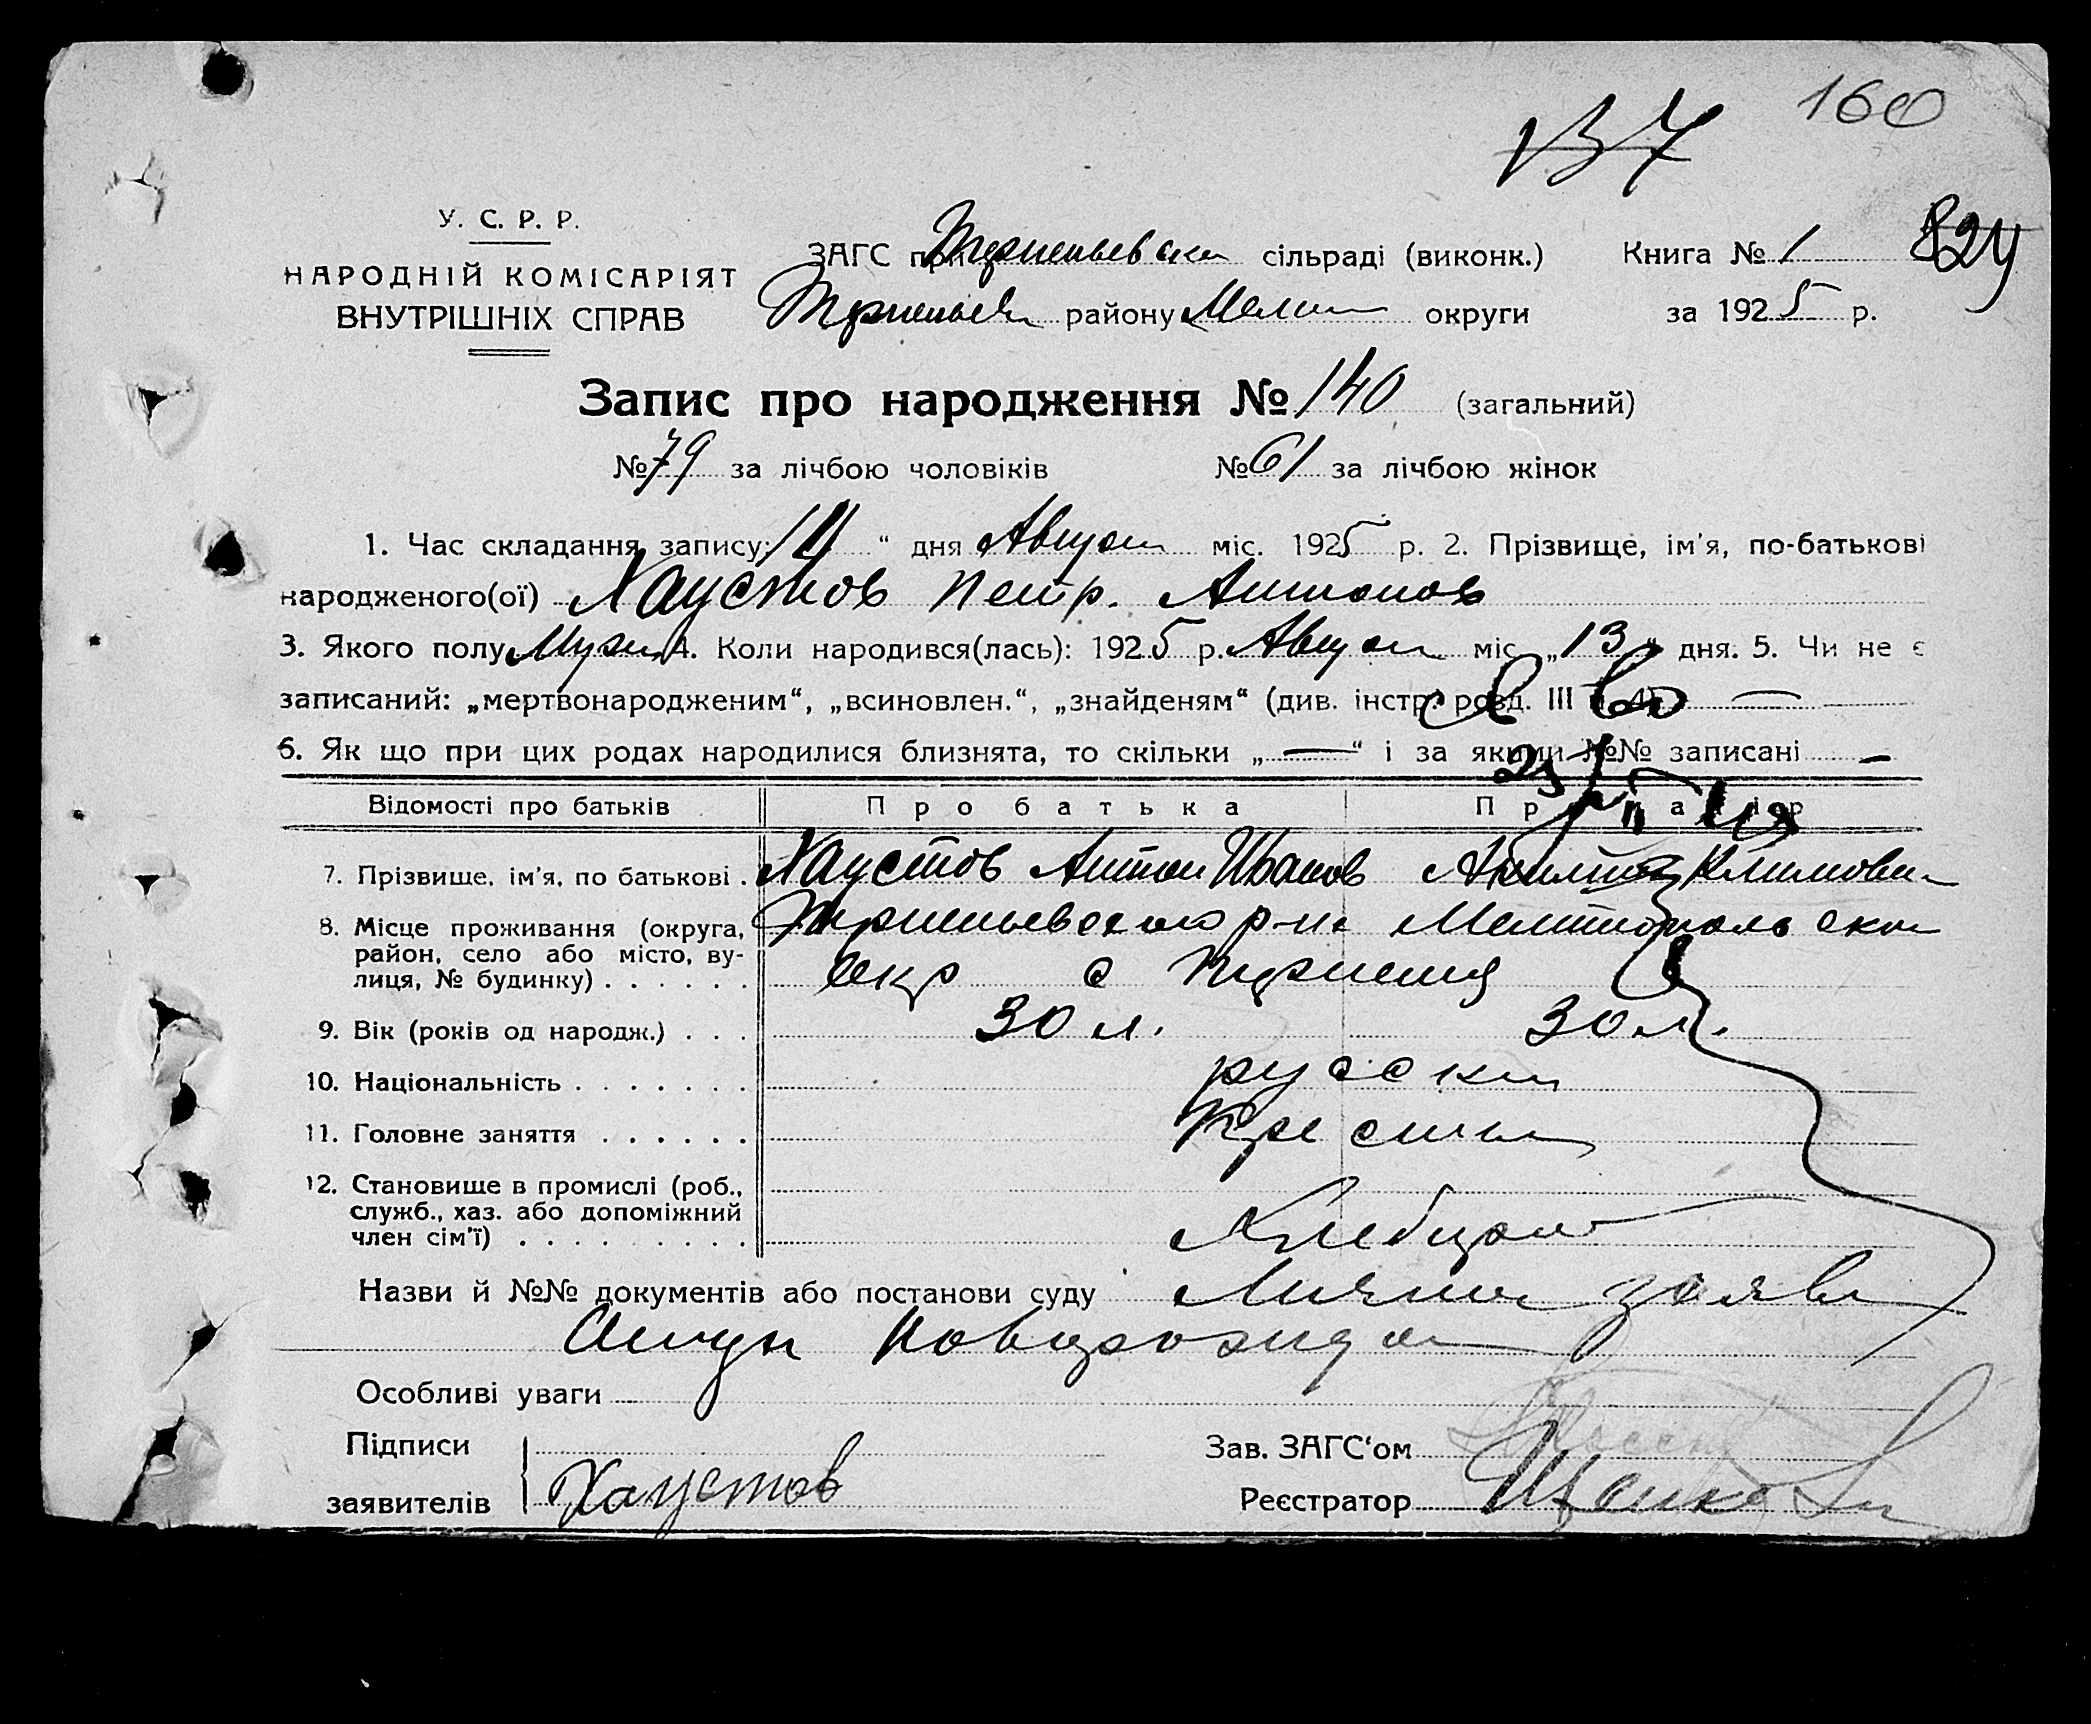 160
137
У. С. Р. Р.
НАРОДНІЙ КОМІСАРІЯТ
ВНУТРІШНІХ СПРАВ
ЗАГС при сільраді (виконк.) Книга № 1 824
району Мелит округи за 1925 р.
Запис про народження № 140 (загальний)
№ 79 за лічбою чоловіків № 61 за лічбою жінок
1. Час складання запису: 14 “ дня Август міс. 1925 р. 2. Прізвище, ім'я, по-батькові
народженого(ої) Хаустов Петр. Антонов
3. Якого полу Муж. 4. Коли народився(лась): 1925 р. Август міс. „13“ дня. 5. Чи не є
записаний: „мертвонародженим“, „всиновлен.“, „знайденям“ (див. інстр. розд. III п. 4) —
6. Як що при цих родах народилися близнята, то скільки „—“ і за якими №№ записані —
Відомості про батьків Про батька Про матір
7. Прізвище, ім'я, по батькові . Хаустов Антон Иванов Климовн
8. Місце проживання (округа, р-на Мелитопольской
район, село або місто, ву-
лиця, № будинку) . . . . . . окр с
9. Вік (років од народж.) . . . 30 л. 30 л.
10. Національність . . . . . . . русский
11. Головне заняття . . . . . .
12. Становище в промислі (роб.,
служб., хаз. або допоміжний
член сім'ї) . . . . . . . . . Хлебороб
Назви й №№ документів або постанови суду заявл
Особливі уваги
Підписи Зав. ЗАГС‘ом
заявителів Хаустов Реєстратор